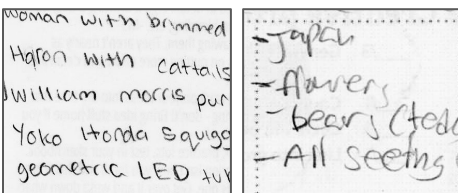 woman with brimmed
Haron with cattails
William morris pur
Yoko Honda Squigg
geometric LED tu
-Japan
-flowers
-bears (tedd
-All seeing